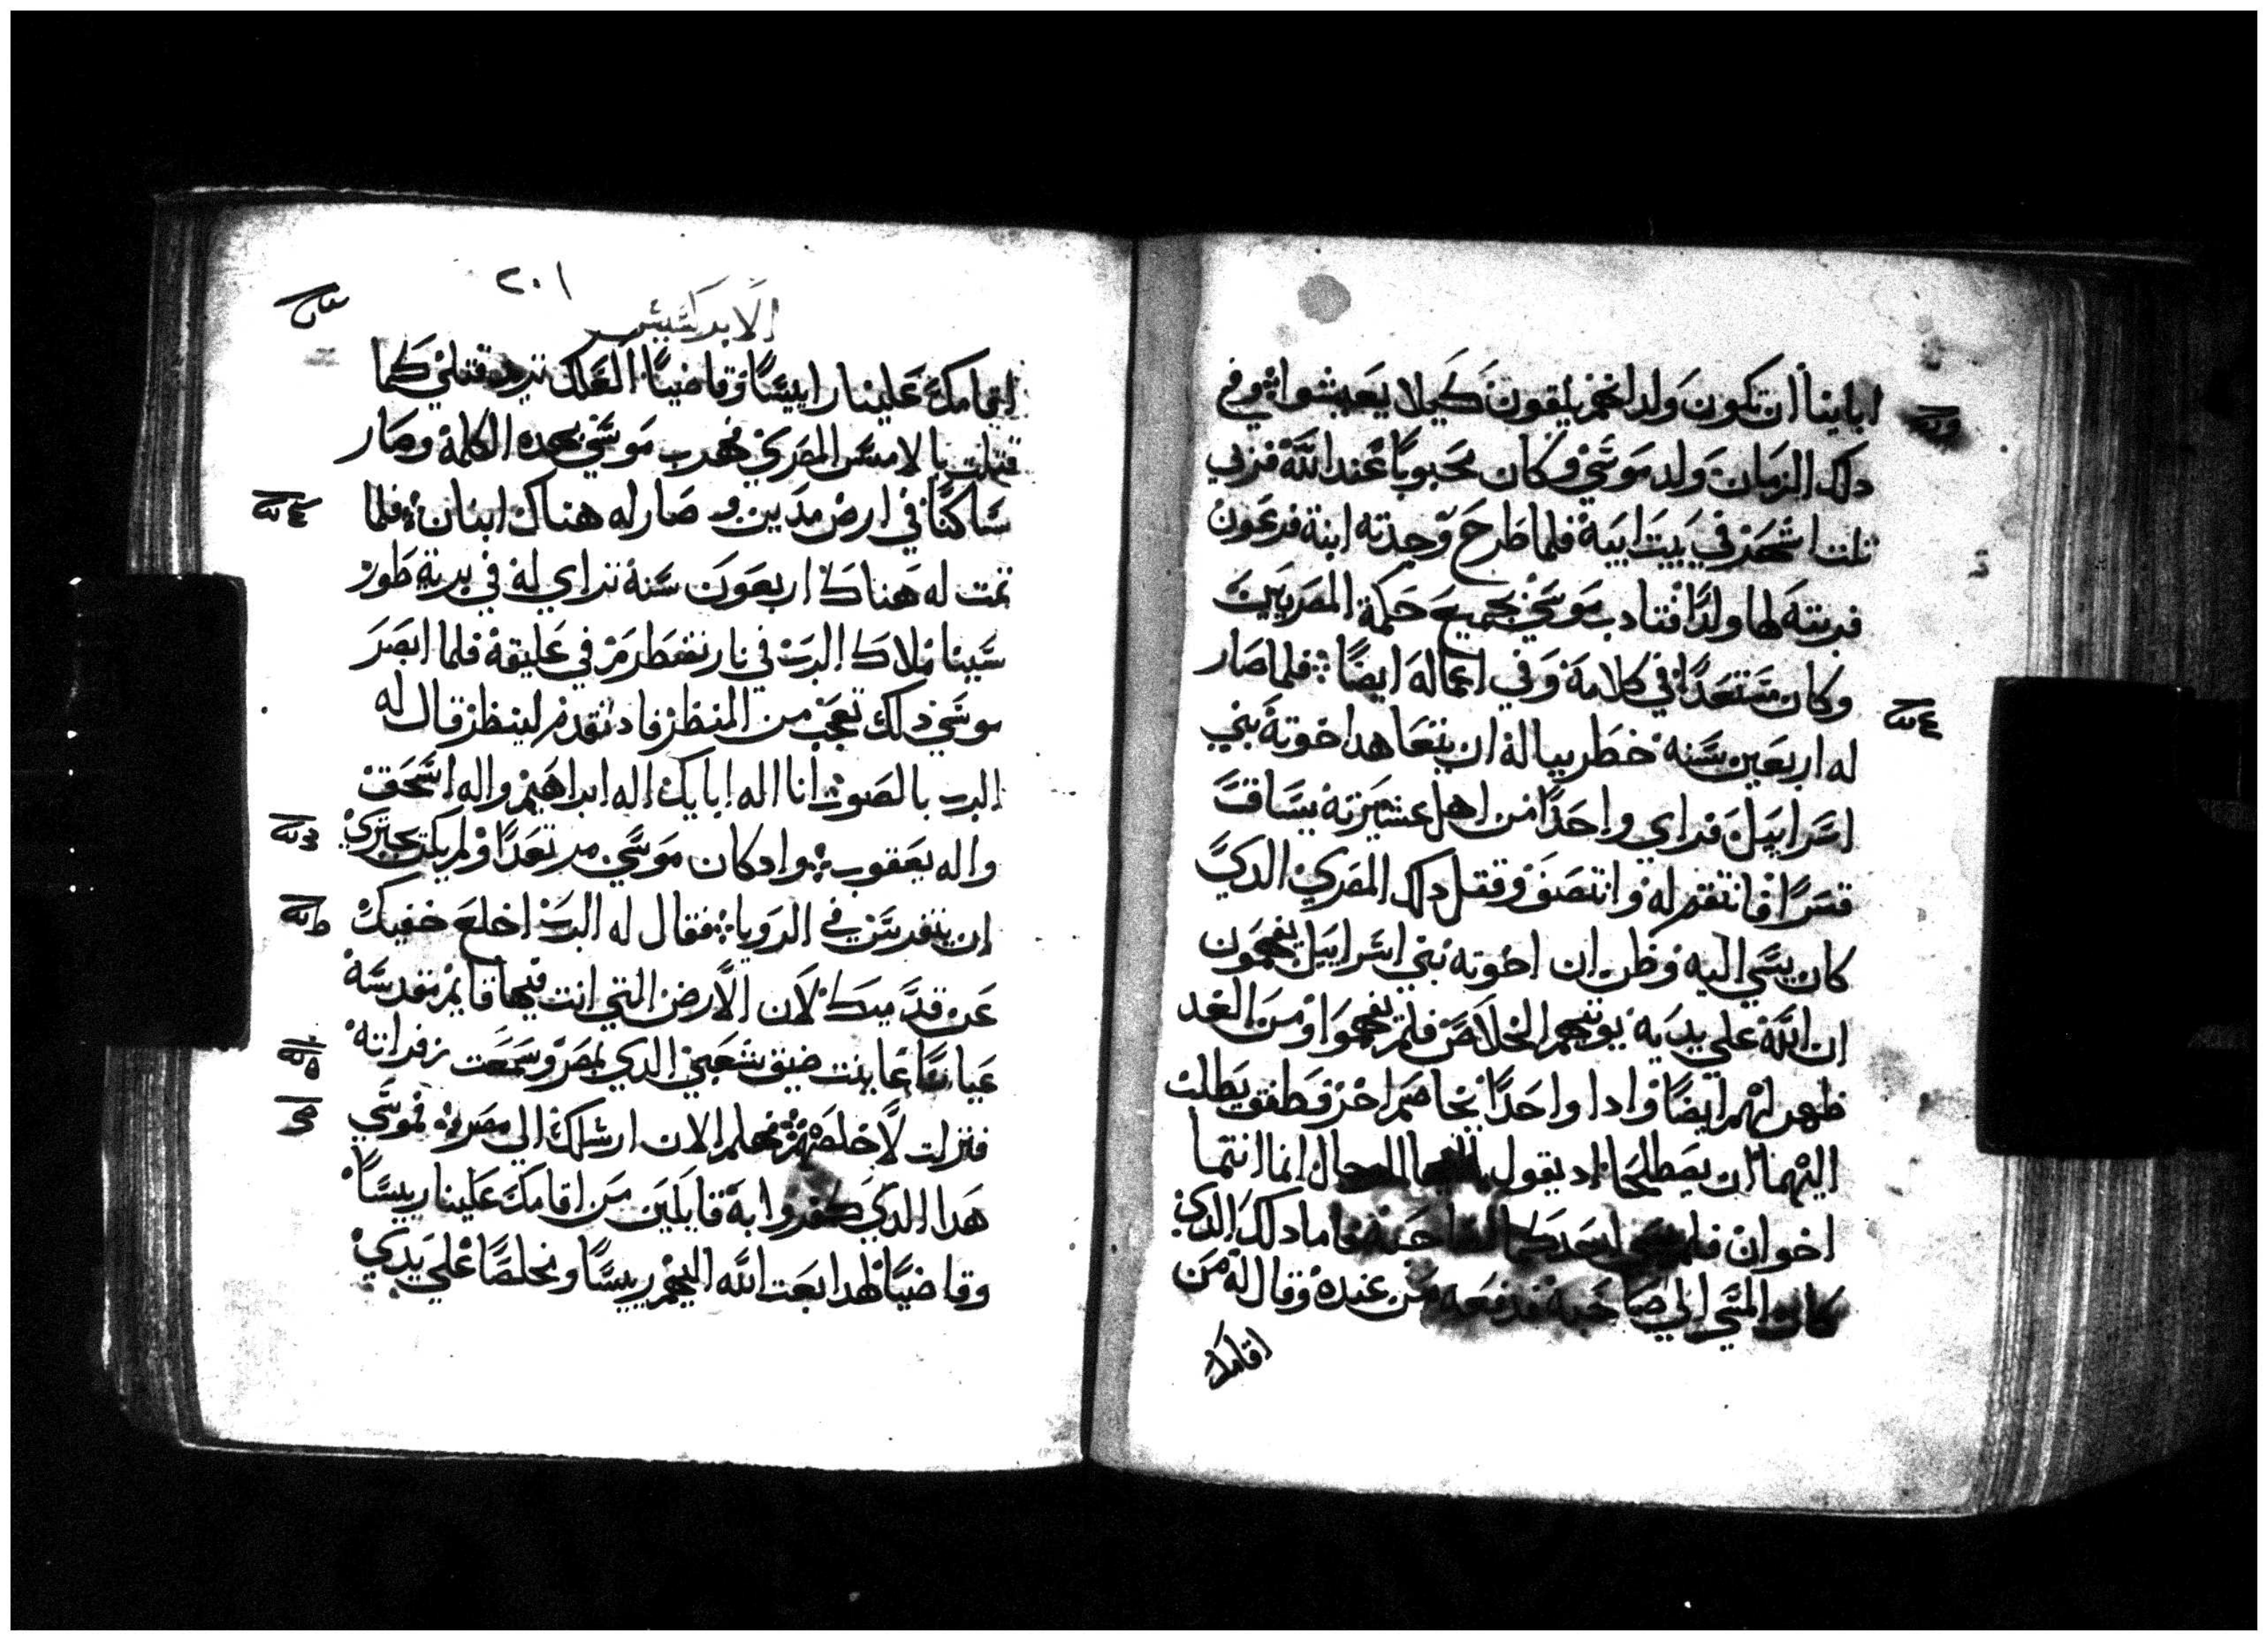 اباينا ان تكون ولدانهم يلقون كيلا يعيشوا وفي
دلك الزمان ولد موسي وكان محبوبا عند الله فربي
تلت اشهر في بيت ابيه فلما طرح وجدته ابنة فرعون
فربته لها ولدا فتادب موسي بجميع حكمة المصريين
وكان مستعدا في كلامه وفي اعماله ايضا فلما صار
له اربعين سنه خطر بباله ان يتعاهد اخوته بني
اسراييل فراي واحدا من اهل عشيرته يساق
قسرا فانتقم له وانتصف وقتل دلك المصري الدي
كان يسي اليه وظن ان اخوته بني اسراييل يفهمون
ان الله علي يديه يوتيهم الخلاص فلم يفهموا ومن الغد
ظهر لهم ايضا واد واحدا يخاصم اخر وطفق يطلب
اليهما ان يصطلحا اد يقول الرجال انما انتما
اخوان فلم صاحبه فاما دلك الدي
كان المسي الي صاحبه فدفعه من عنده وقال له من
اقامك
٢٠١
الابركسيس
اقامك علينا راييسا وقاضيا العلك تريد قتلي كما
قتلت بالامس المصري فهرب موسي بهده الكلمة وصار
ساكنا في ارض مدين وصار له هناك ابنان فلما
تمت له هناك اربعون سنة تراي له في برية طور
سينا ملاك الرب في نار تضطرم في عليقة فلما ابصر
موسي دلك تعجب من المنظر فاد تقدم لينظر قال له
الرب بالصوت انا اله ابايك اله ابراهيم واله اسحق
واله يعقوب واد كان موسي مرتعدا ولم يكن يجتري
ان يتفرس في الرويا فقال له الرب اخلع خفيك
عن قدميك لان الارض التي انت فيها قايم مقدسة
عيانا عاينت ضيق شعبي الدي بمصر وسمعت زفراته
فنزلت لاخلصهم فهلم الان ارسلك الي مصر فموسي
هدا الدي كفروا به قايلين من اقامك علينا رييسا
وقاضيا لهدا بعت الله اليهم رييسا ومخلصا علي يدي